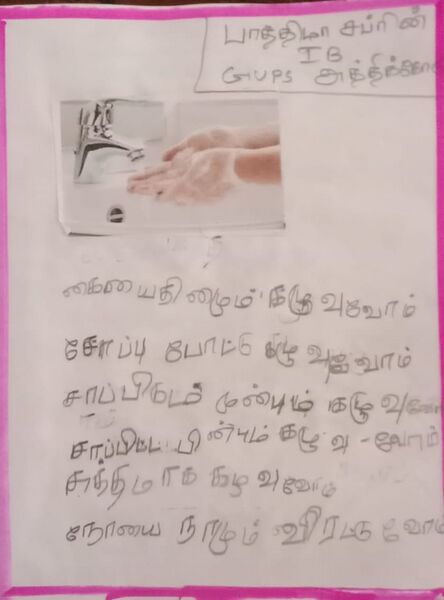 பாத்திமா சப்ரின்
I B
GUPS அத்திக்கோ
கையைதினமும் கழு வுவோம்
சோப்பு போட்டு கழு வுவோம்
சாப்பிடும் முன்பும் கழு வுவோ
சாப்பிட்ட பின்பும் கழு வு -வோம்
சுத்தமாக கழ வுவோம்
நோயை நாமும் விரட்டு வோம்